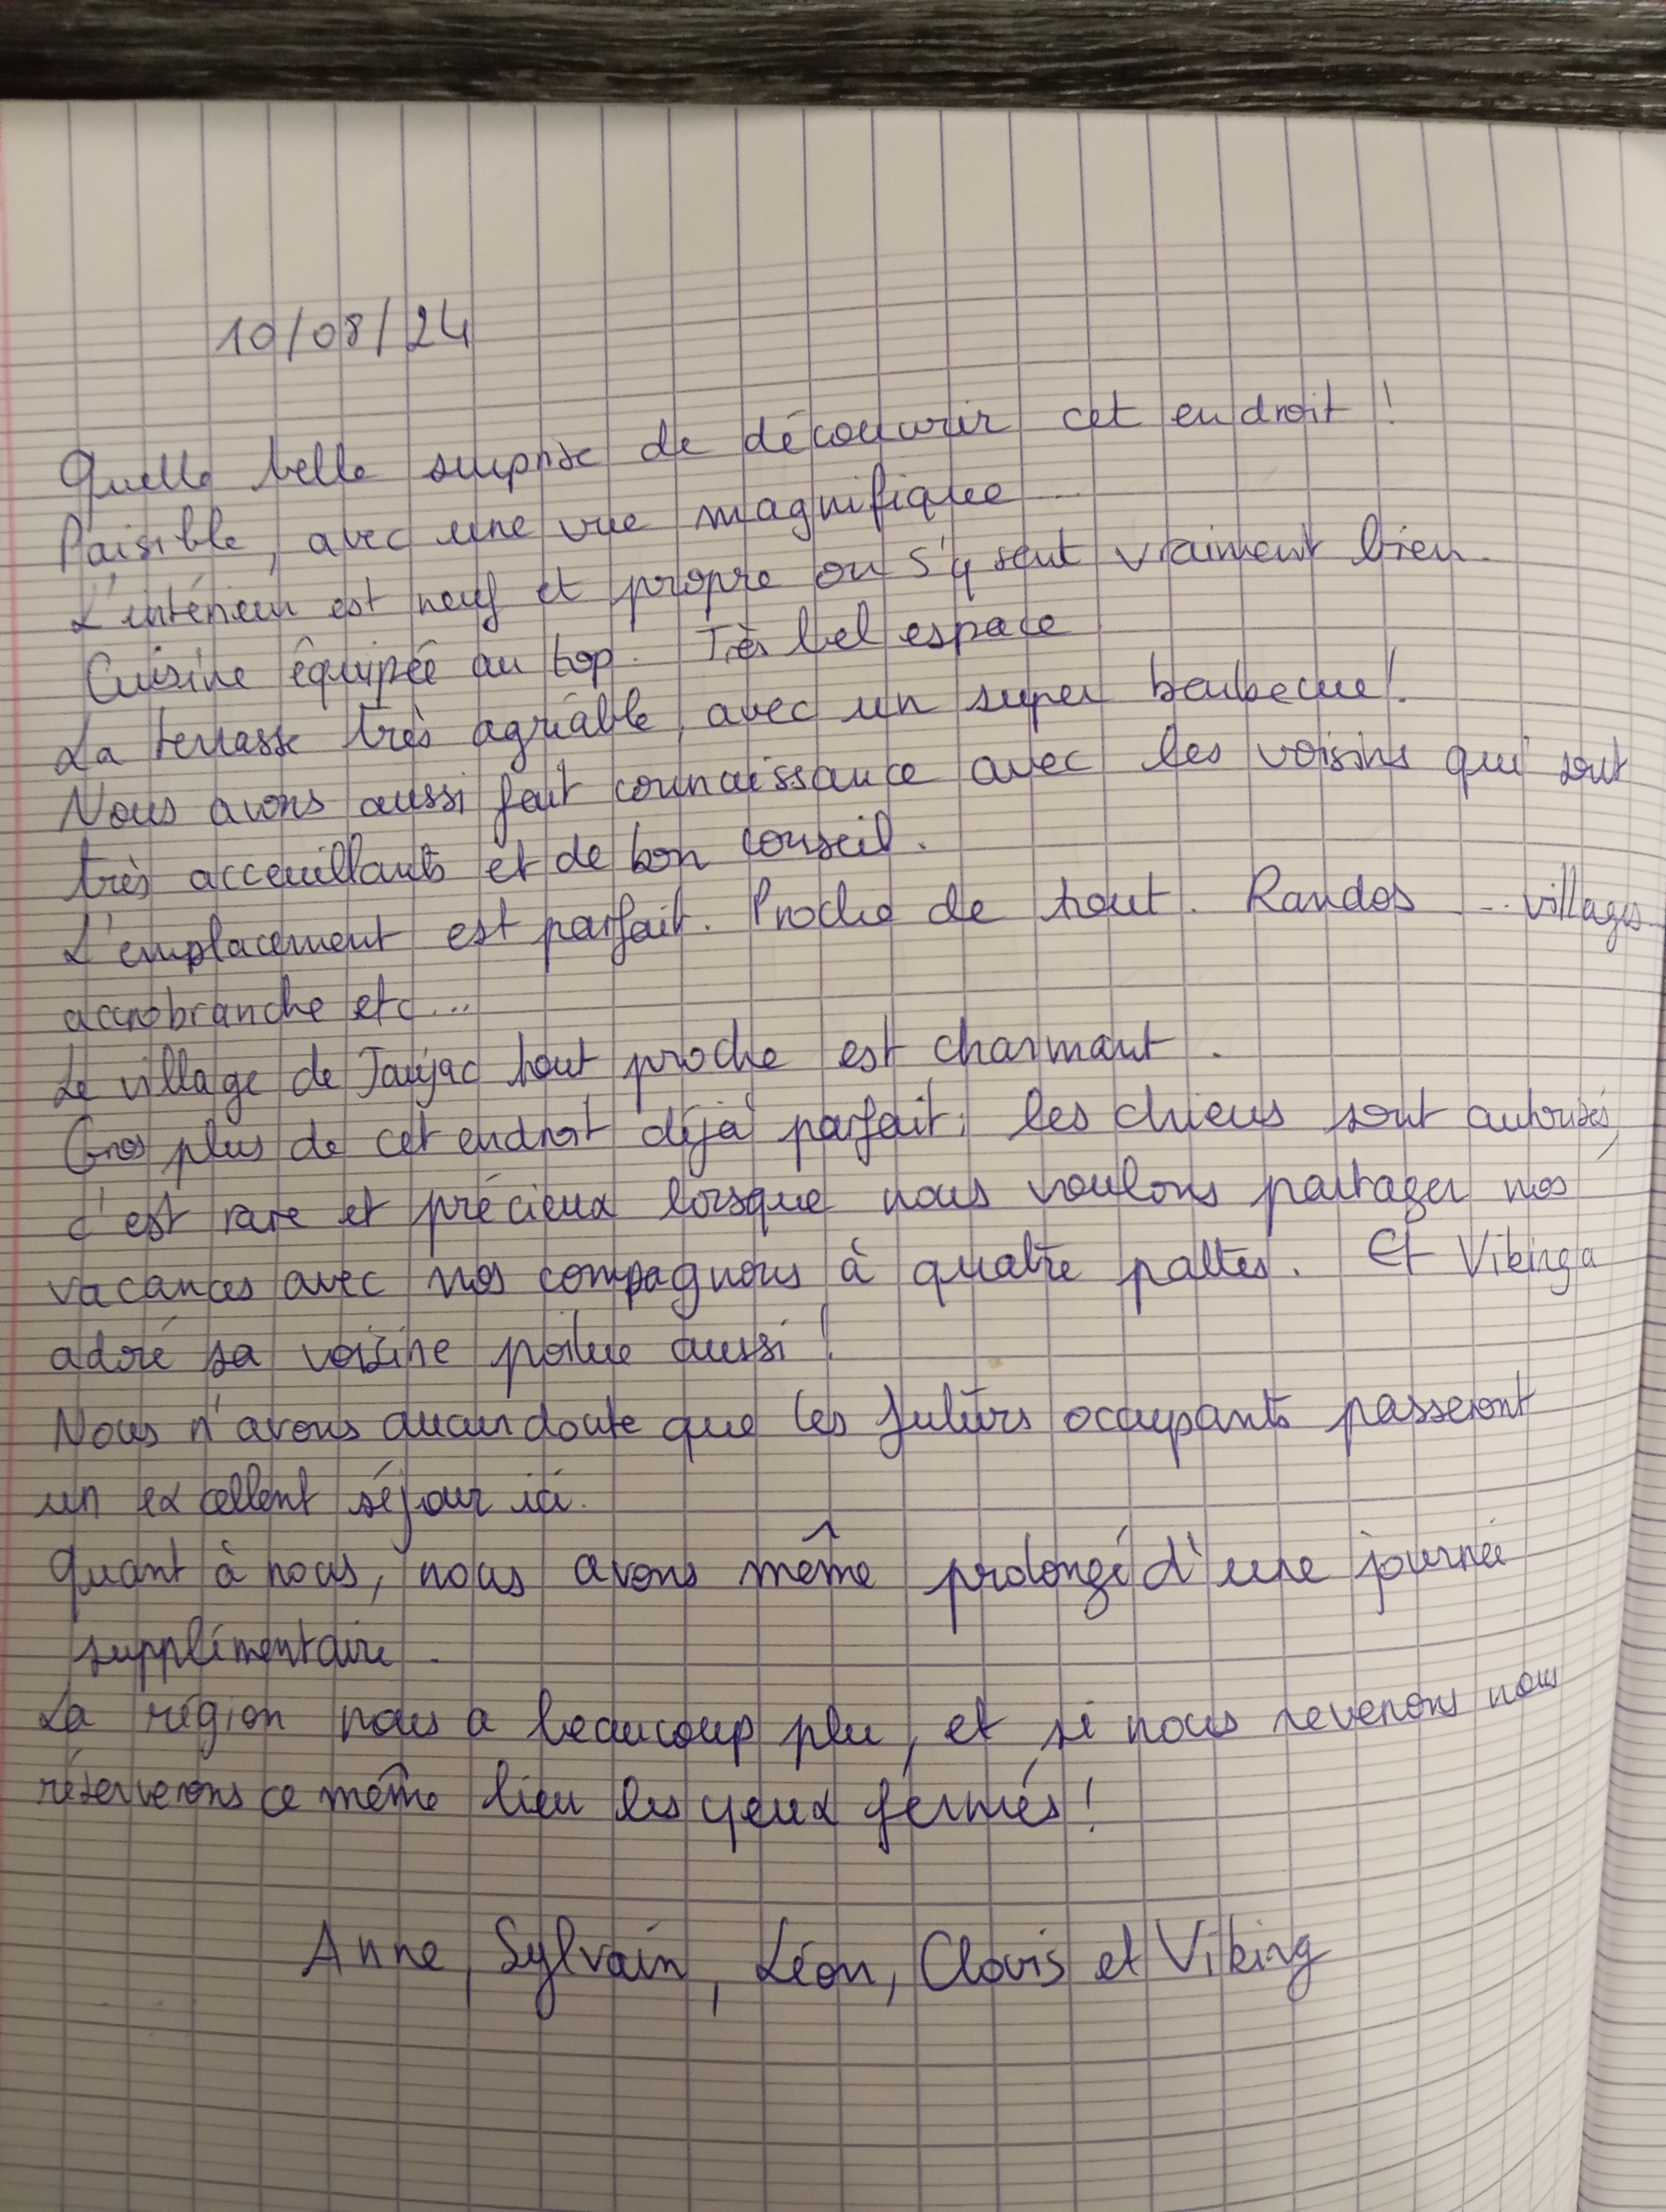 10/08/24
Quelle belle surprise de découvrir cet endroit !
Paisible, avec une vue magnifique
L'intérieur est neuf et propre on s'y sent vraiment bien.
Cuisine équipée au top. Très bel espace
La terrasse très agréable, avec un super barbecue !
Nous avons aussi fait connaissance avec les voisins qui sont
très acceuillants et de bon conseil.
L'emplacement est parfait. Proche de tout. Randos ... villages
accrobranche etc...
Le village de Jaujac tout proche est charmant.
Gros plus de cet endroit déjà parfait : les chiens sont autorisés,
c'est rare et précieux lorsque nous voulons partager nos
vacances avec nos compagnons à quatre pattes. Et Viking a
adoré sa voisine poilue aussi !
Nous n'avons aucun doute que les futurs occupants passeront
un excellent séjour ici.
Quant à nous, nous avons même prolongé d'une journée
supplémentaire.
La région nous a beaucoup plu, et si nous revenons nous
réserverons ce même lieu les yeux fermés !
Anne, Sylvain, Léon, Clovis et Viking